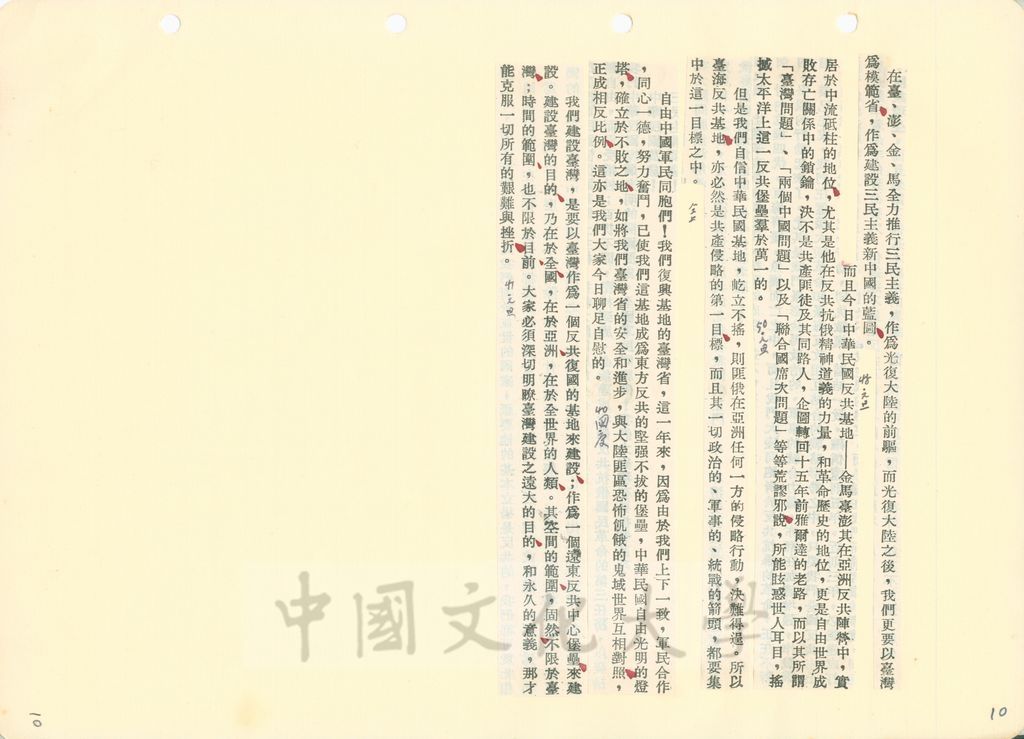 在臺、澎、金、馬全力推行三民主義，作爲光復大陸的前驅，而光復大陸之後，我們更要以臺灣
爲模範省，作爲建設三民主義新中國的藍圖。
而且今日中華民國反共基地——金馬臺澎其在亞洲反共陣營中，實
居於中流砥柱的地位，尤其是他在反共抗俄精神道義的力量，和革命歷史的地位，更是自由世界成
敗存亡關係中的鎖鑰，決不是共產匪徒及其同路人，企圖轉回十五年前雅爾達的老路，而以其所謂
「臺灣問題」、「兩個中國問題」以及「聯合國席次問題」等等荒謬邪說，所能眩惑世人耳目，搖
撼太平洋上這一反共堡壘羣於萬一的。 50.元旦
但是我們自信中華民國基地，屹立不搖，則匪俄在亞洲任何一方的侵略行動，決難得逞。所以
臺海反共基地，亦必然是共產侵略的第一目標，而且其一切政治的、軍事的、統戰的箭頭，都要集
中於這一目標之中。 仝上
自由中國軍民同胞們！我們復興基地的臺灣省，這一年來，因爲由於我們上下一致，軍民合作
，同心一德，努力奮鬥，已使我們這基地成爲東方反共的堅强不拔的堡壘，中華民國自由光明的燈
塔，確立於不敗之地，如將我們臺灣省的安全和進步，與大陸匪區恐怖飢餓的鬼域世界互相對照，
正成相反比例。這亦是我們大家今日聊足自慰的。 40國慶
我們建設臺灣，是要以臺灣作爲一個反共復國的基地來建設；作爲一個遠東反共中心堡壘來建
設。建設臺灣的目的，乃在於全國，在於亞洲，在於全世界的人類。其空間的範圍，固然不限於臺
灣；時間的範圍，也不限於目前。大家必須深切明瞭臺灣建設之遠大的目的，和永久的意義，那才
能克服一切所有的艱難與挫折。 41.元旦
中國文化大學
10
10